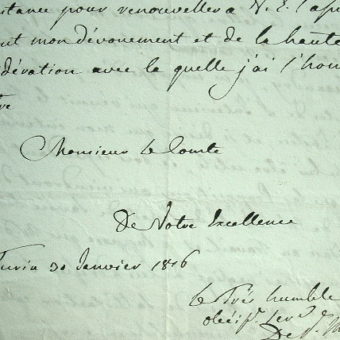 stance pour renouveller à V. E. l'ap
nt mon dévouement et de la haute
dération avec la quelle j'ai l'hon
tre
Monsieur le Comte
De Votre Excellence
Turin 30 Janvier 1816
le Très humble
De